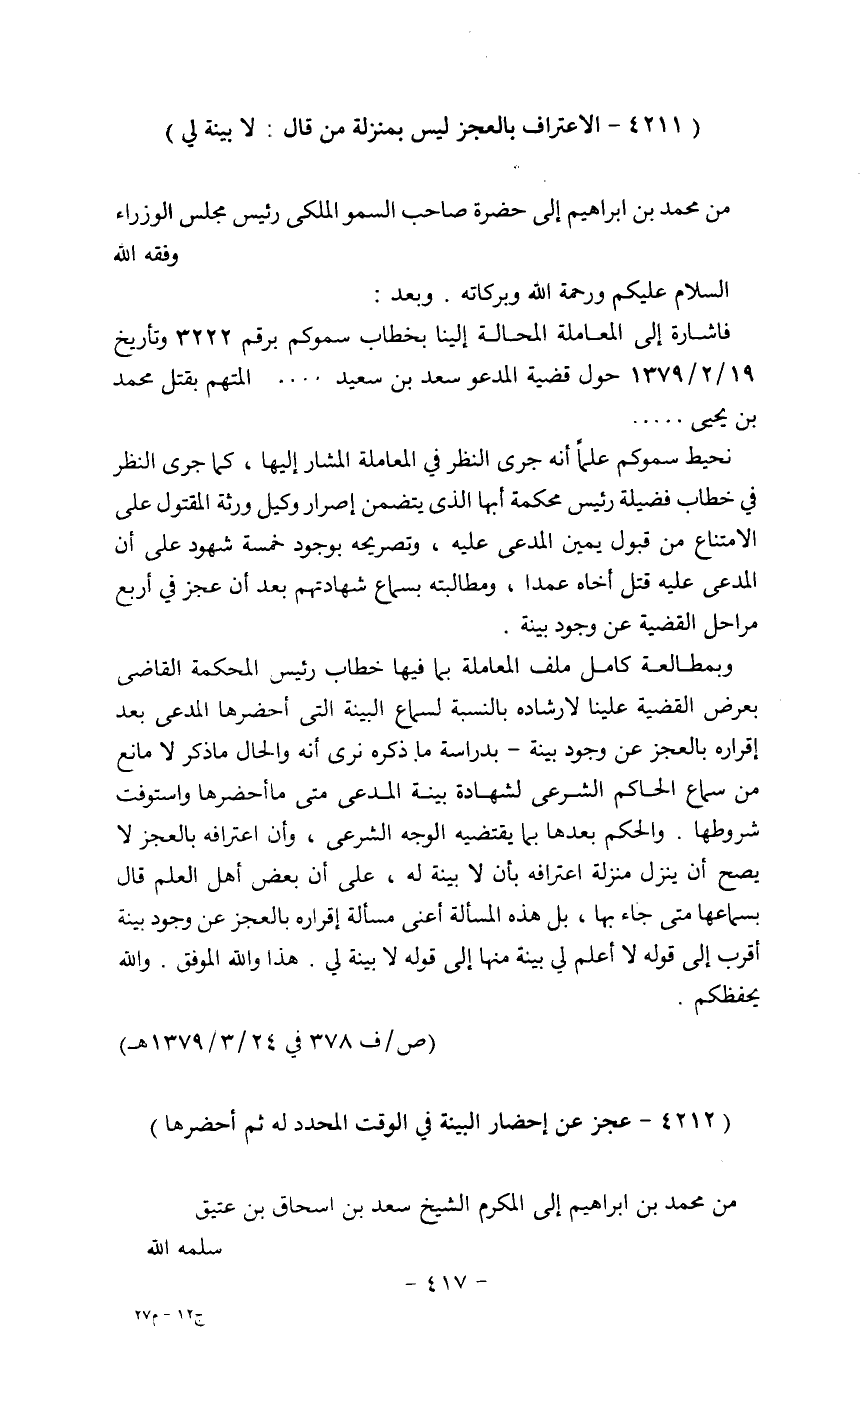 ( ٤٢١١ – الاعتراف بالعجز ليس بمنزلة من قال : لا بينة لي )
من محمد بن ابراهيم إلى حضرة صاحب السمو الملكى رئيس مجلس الوزراء
وفقه الله
السلام عليكم ورحمة الله وبركاته . وبعد :
فاشارة إلى المعاملة المحالة إلينا بخطاب سموكم برقم ٣٢٢٢ وتأريخ
١٣٧٩/٢/١٩ حول قضية المدعو سعد بن سعيد .... المتهم بقتل محمد
بن يحيى .....
نحيط سموكم علماً أنه جرى النظر في المعاملة المشار إليها ، كما جرى النظر
في خطاب فضيلة رئيس محكمة أبها الذى يتضمن إصرار وكيل ورثة المقتول على
الامتناع من قبول يمين المدعى عليه ، وتصريحه بوجود خمسة شهود على أن
المدعى عليه قتل أخاه عمدا ، ومطالبته بسماع شهادتهم بعد أن عجز في أربع
مراحل القضية عن وجود بينة .
وبمطالعة كامل ملف المعاملة بما فيها خطاب رئيس المحكمة القاضى
بعرض القضية علينا لارشاده بالنسبة لسماع البينة التى أحضرها المدعى بعد
إقراره بالعجز عن وجود بينة – بدراسة ما ذكره نرى أنه والحال ماذكر لا مانع
من سماع الحاكم الشرعى لشهادة بينة المدعى متى ماأحضرها واستوفت
شروطها . والحكم بعدها بما يقتضيه الوجه الشرعى ، وأن اعترافه بالعجز لا
يصح أن ينزل منزلة اعترافه بأن لا بينة له ، على أن بعض أهل العلم قال
بسماعها متى جاء بها ، بل هذه المسألة أعنى مسألة إقراره بالعجز عن وجود بينة
أقرب إلى قوله لا أعلم لي بينة منها إلى قوله لا بينة لي . هذا والله الموفق . والله
يحفظكم .
(ص/ف ٣٧٨ في ١٣٧٩/٣/٢٤هـ)
( ٤٢١٢ – عجز عن إحضار البينة في الوقت المحدد له ثم أحضرها )
من محمد بن ابراهيم إلى المكرم الشيخ سعد بن اسحاق بن عتيق
سلمه الله
– ٤١٧ –
ج١٢ – م٢٧